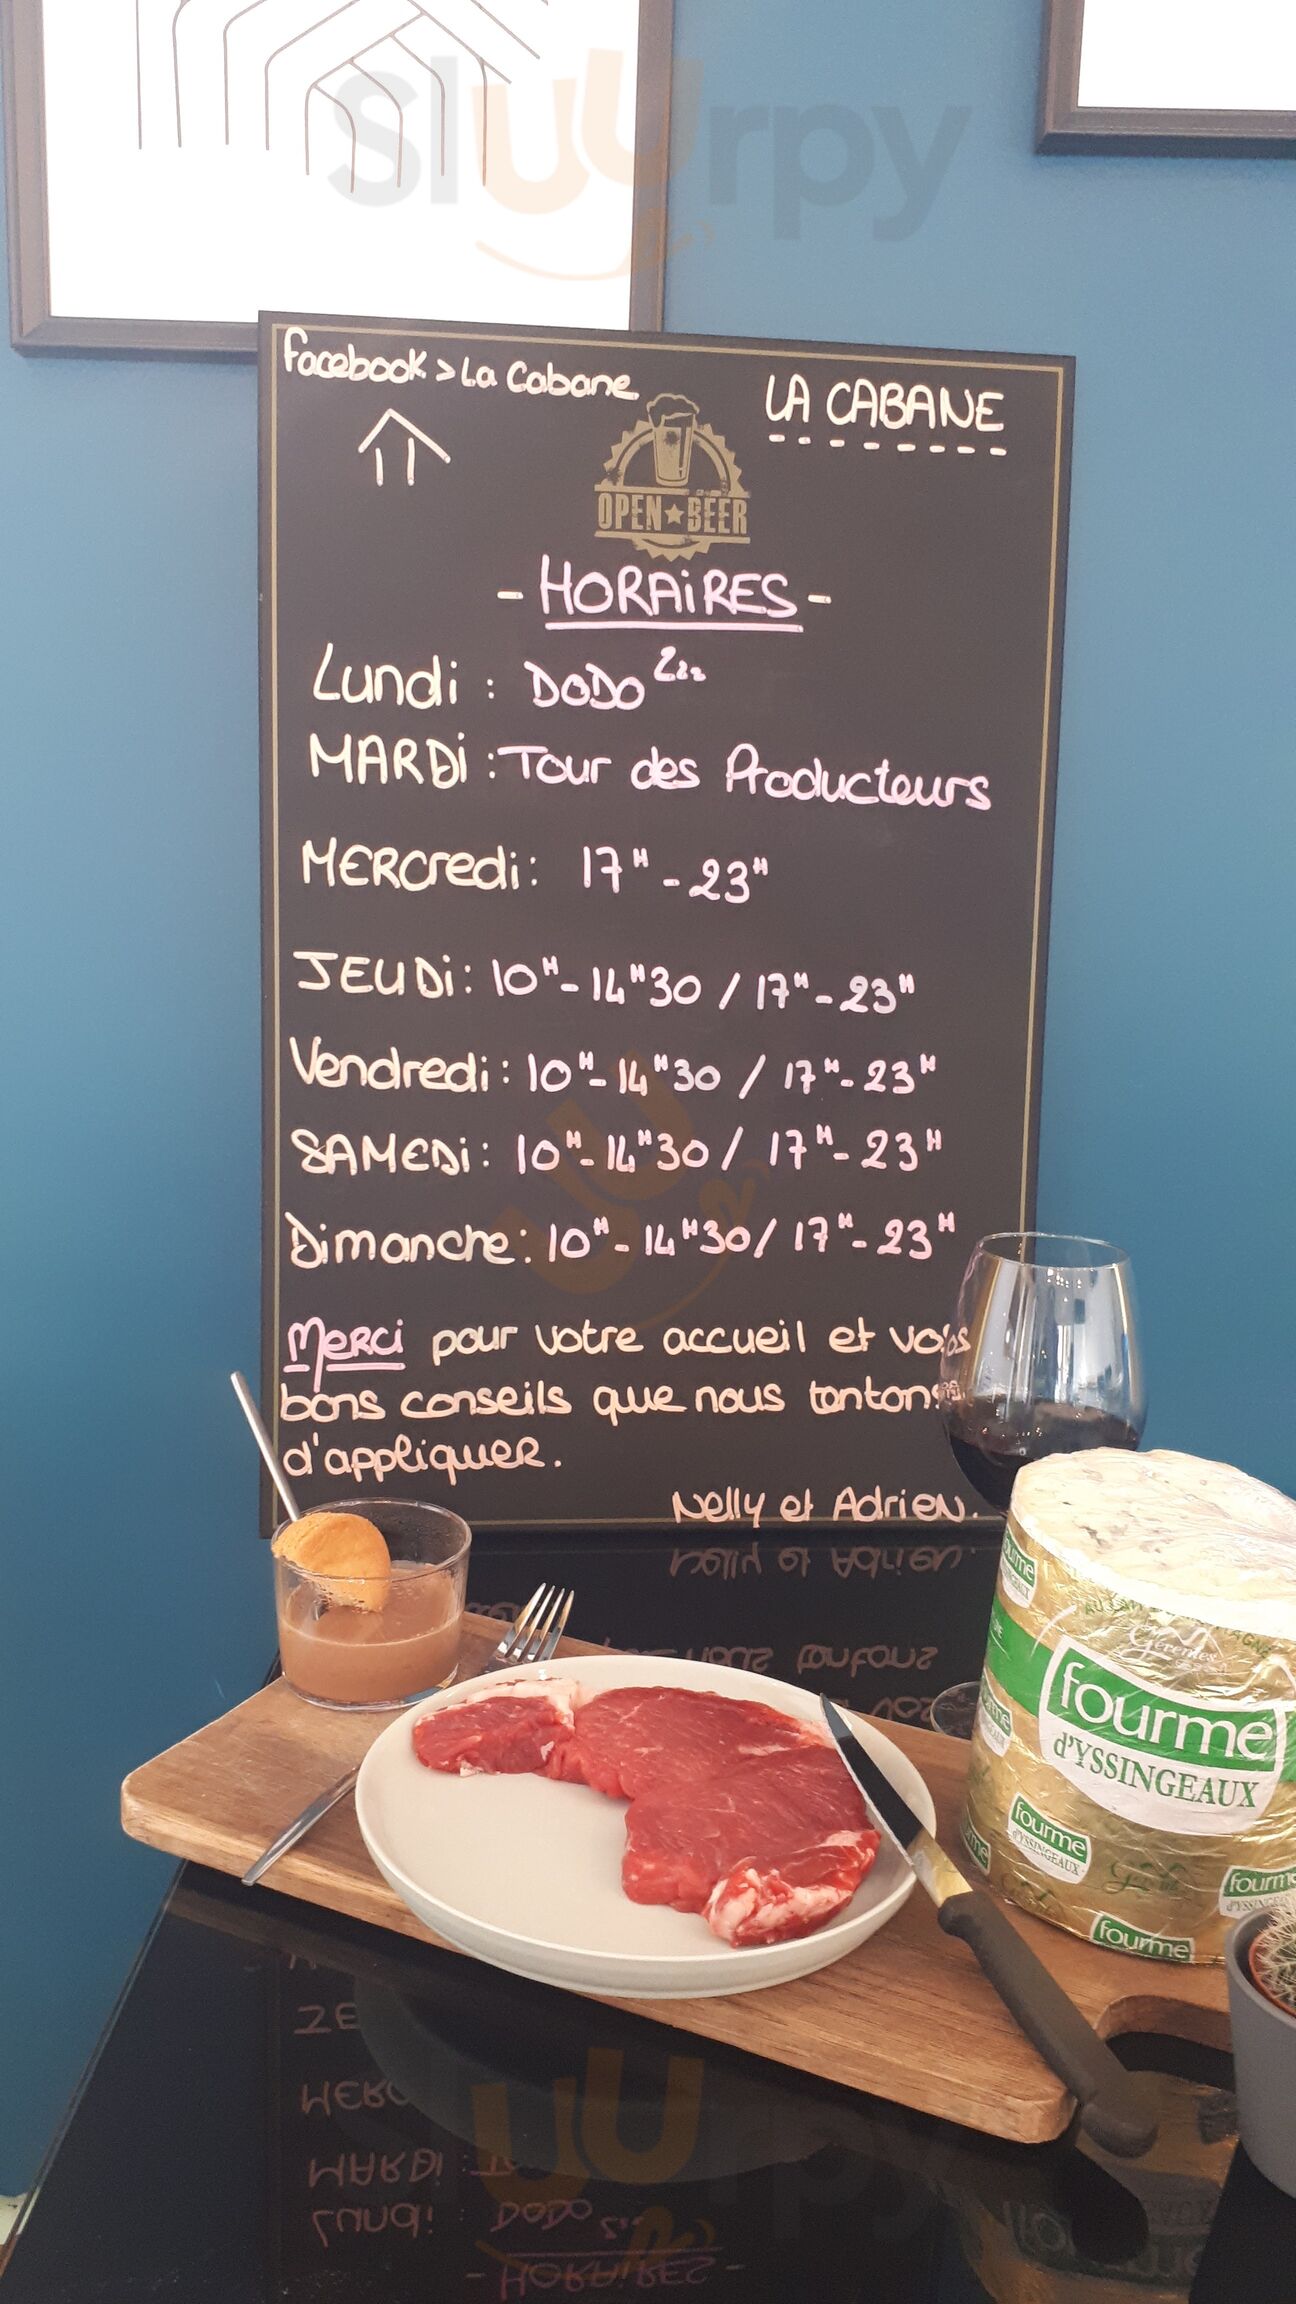 Sluurpy
Facebook > La Cabane
LA CABANE
OPEN★BEER
- HORAiRES -
Lundi : DODO Zzz
MARDi : Tour des Producteurs
MERCredi : 17H - 23H
JEUDi : 10H - 14H30 / 17H - 23H
Vendredi : 10H - 14H30 / 17H - 23H
SAMEDi : 10H - 14H30 / 17H - 23H
Dimanche : 10H - 14H30 / 17H - 23H
Merci pour votre accueil et vos
bons conseils que nous tentons
d'appliquer.
Nelly et Adrien.
Gérentes
fourme
d'YSSINGEAUX
fourme
d'YSSINGEAUX
fourme
fourme